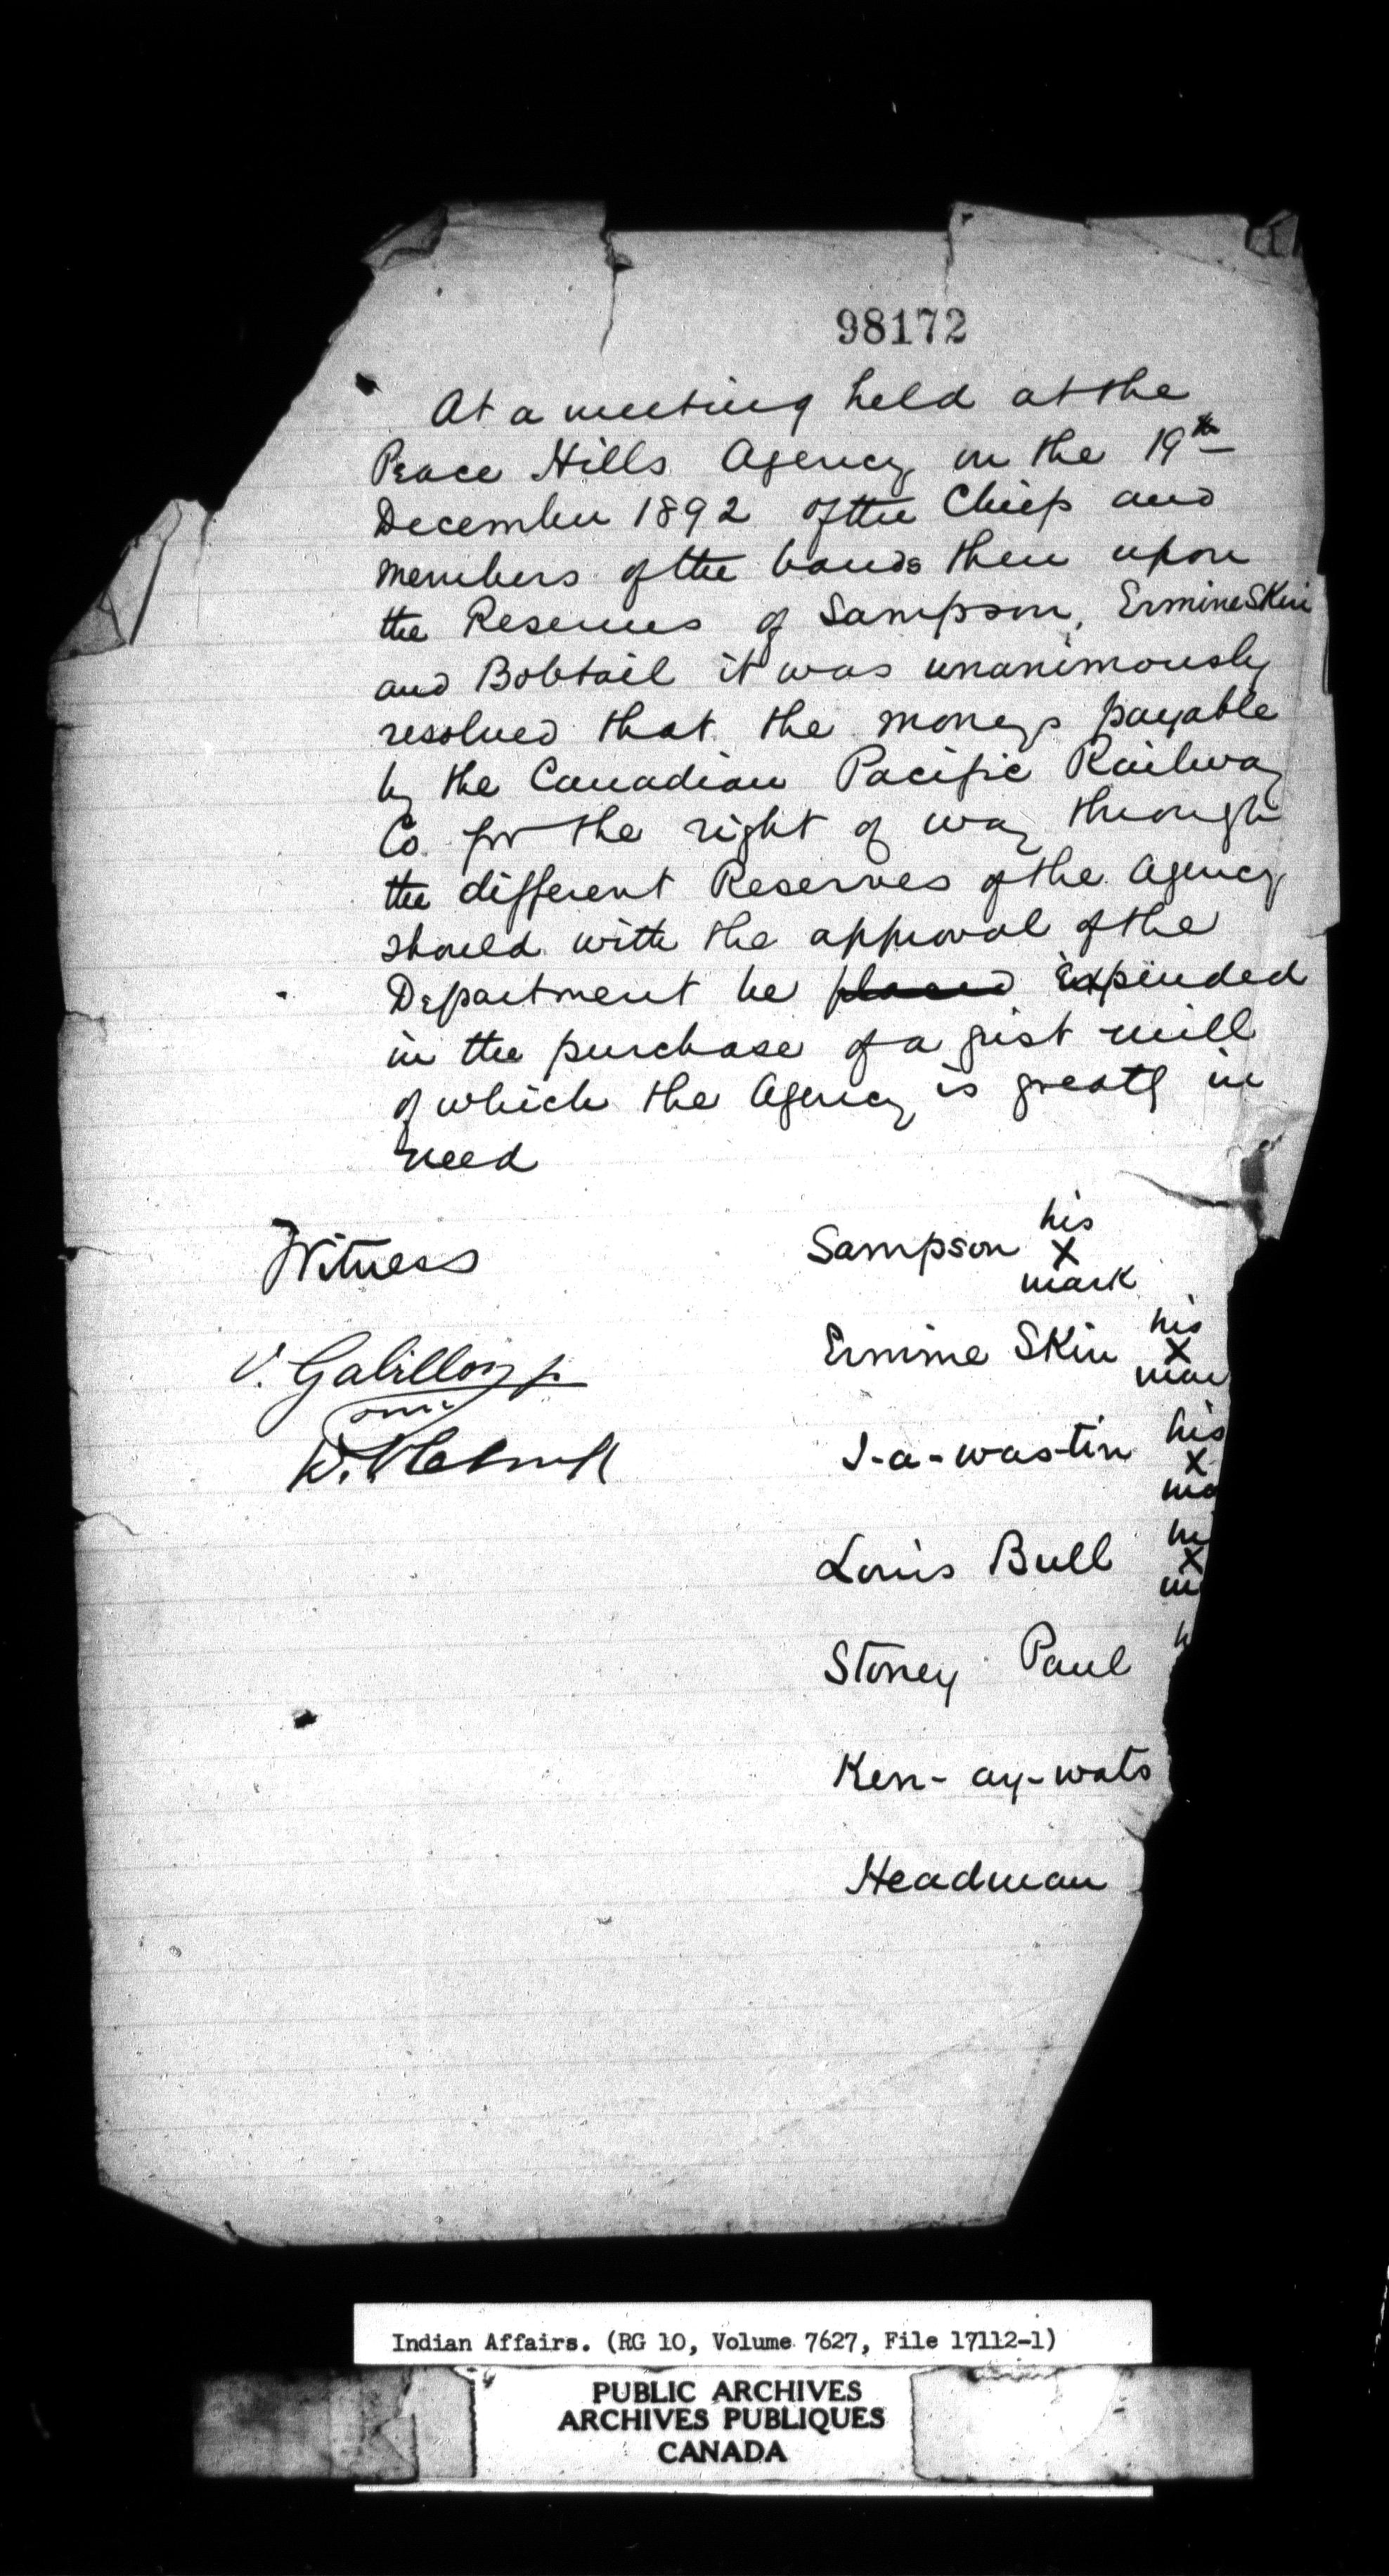 98172
At a meeting held at the
Peace Hills Agency on the 19th
December 1892 of the Chiefs and
members of the bands then upon
the Reserves of Sampson, ErmineSkin
and Bobtail it was unanimously
resolved that the moneys payable
by the Canadian Pacific Railway
Co. for the right of way through
the different Reserves of the Agency
should with the approval of the
Department be placed Expended
in the purchase of a grist mill
of which the Agency is greatly in
need
Witness
Sampson his X mark
Ermine Skin his X mar
V. Gabillon
J-a-was-tin his X ma
Louis Bull hi X m
Stoney Paul h
Ken-ay-wats
Headman
Indian Affairs. (RG 10, Volume 7627, File 17112-1)
PUBLIC ARCHIVES
ARCHIVES PUBLIQUES
CANADA